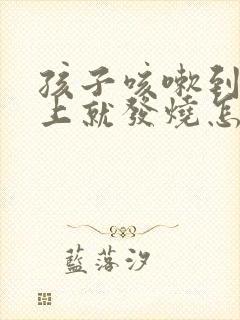 孩子咳嗽到
上就發燒怎
藍落汐